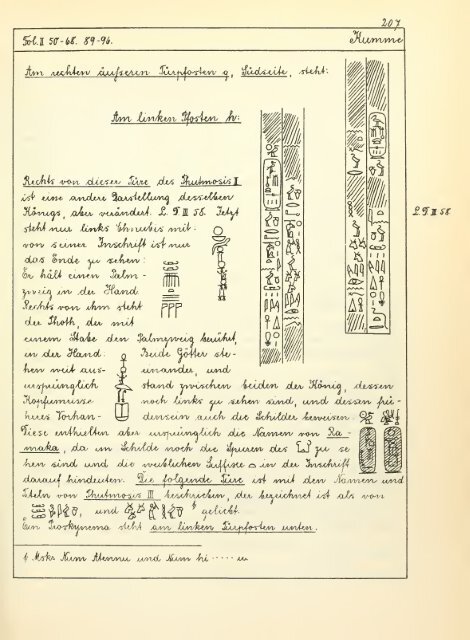 207
Fol. II 50-68. 89-96. Kumme
Am rechten äußeren Türpfosten g, Südseite, steht:
Am linken Pfosten h:
L D III 58
Rechts von dieser Türe des Thutmosis II
ist eine andere Darstellung desselben
Königs, aber verändert. L D III 58. Jetzt
steht nur links Chnubis mit
von seiner Inschrift ist nur
das Ende zu sehen:
Er hält einen Palm-
zweig in der Hand
Rechts von ihm steht
der Thoth, der mit
einem Stabe den Palmzweig berührt,
in der Hand: Beide Götter ste-
hen weit aus- einander, und
ursprünglich stand zwischen beiden der König, dessen
Kopfumrisse noch links zu sehen sind, und dessen frü-
heres Vorhan- densein auch die Schilder beweisen:
Diese enthielten aber ursprünglich die Namen von Ra-
maka, da im Schilde noch die Spuren des zu se-
hen sind und die weiblichen Suffixe in der Inschrift
darauf hindeuten. Die folgende Türe ist mit den Namen und
Titeln von Thutmosis III beschrieben, der bezeichnet ist als von
und geliebt.
Ein Proskynema steht am linken Türpfosten unten.
Num Atennu und Num hi ..... u